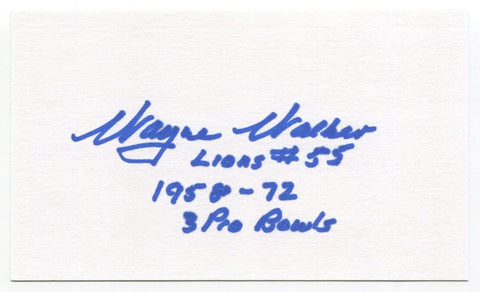 Wayne Walker
Lions #55
1958-72
3 Pro Bowls